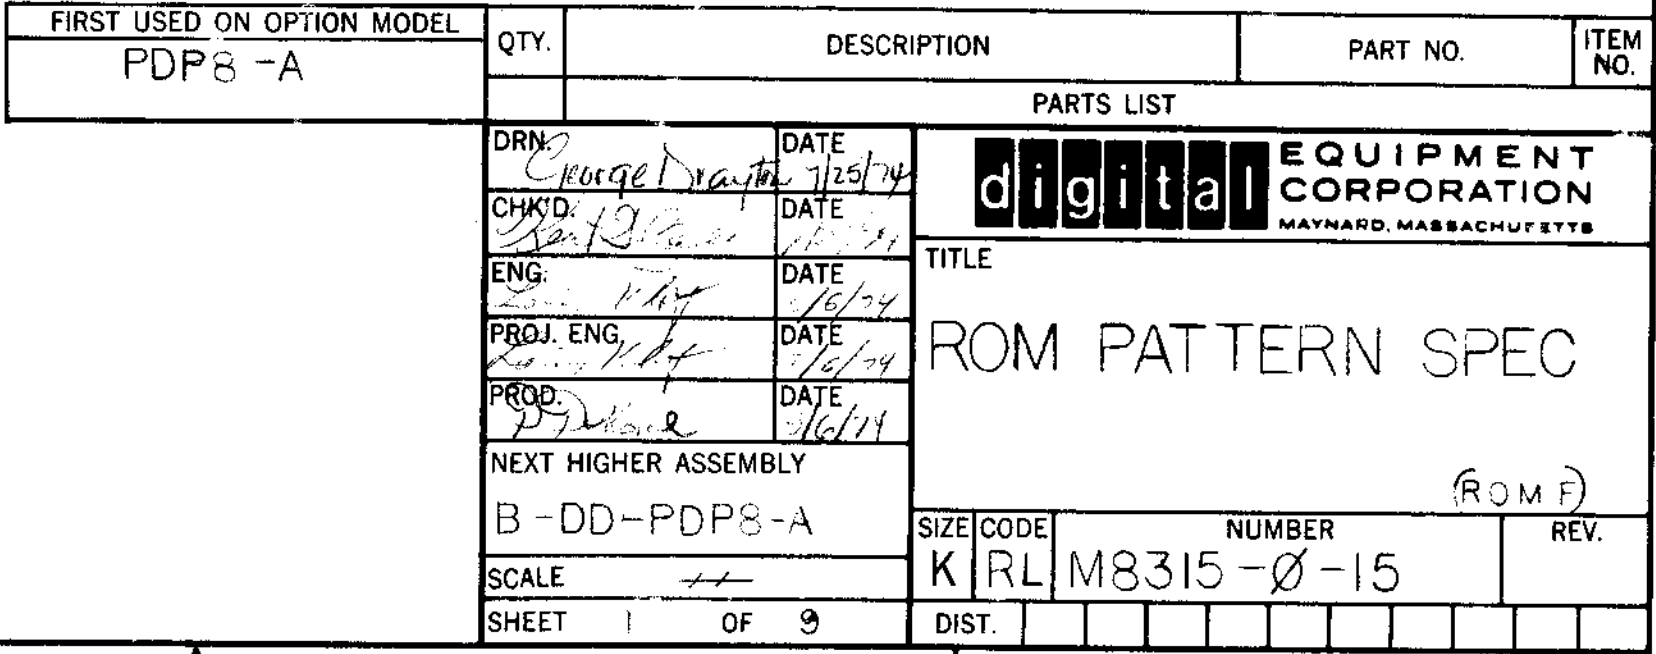 FIRST USED ON OPTION MODEL
PDP8-A
QTY. DESCRIPTION PART NO. ITEM NO.
PARTS LIST
DRN. George Drayton DATE 7/25/74
CHK'D. DATE
ENG. DATE /6/74
PROJ. ENG. DATE /6/74
PROD. DATE /6/74
NEXT HIGHER ASSEMBLY
B-DD-PDP8-A
SCALE
SHEET 1 OF 9
digital EQUIPMENT
CORPORATION
MAYNARD, MASSACHUSETTS
TITLE
ROM PATTERN SPEC
(ROM F)
SIZE CODE NUMBER REV.
K RL M8315-Ø-15
DIST.